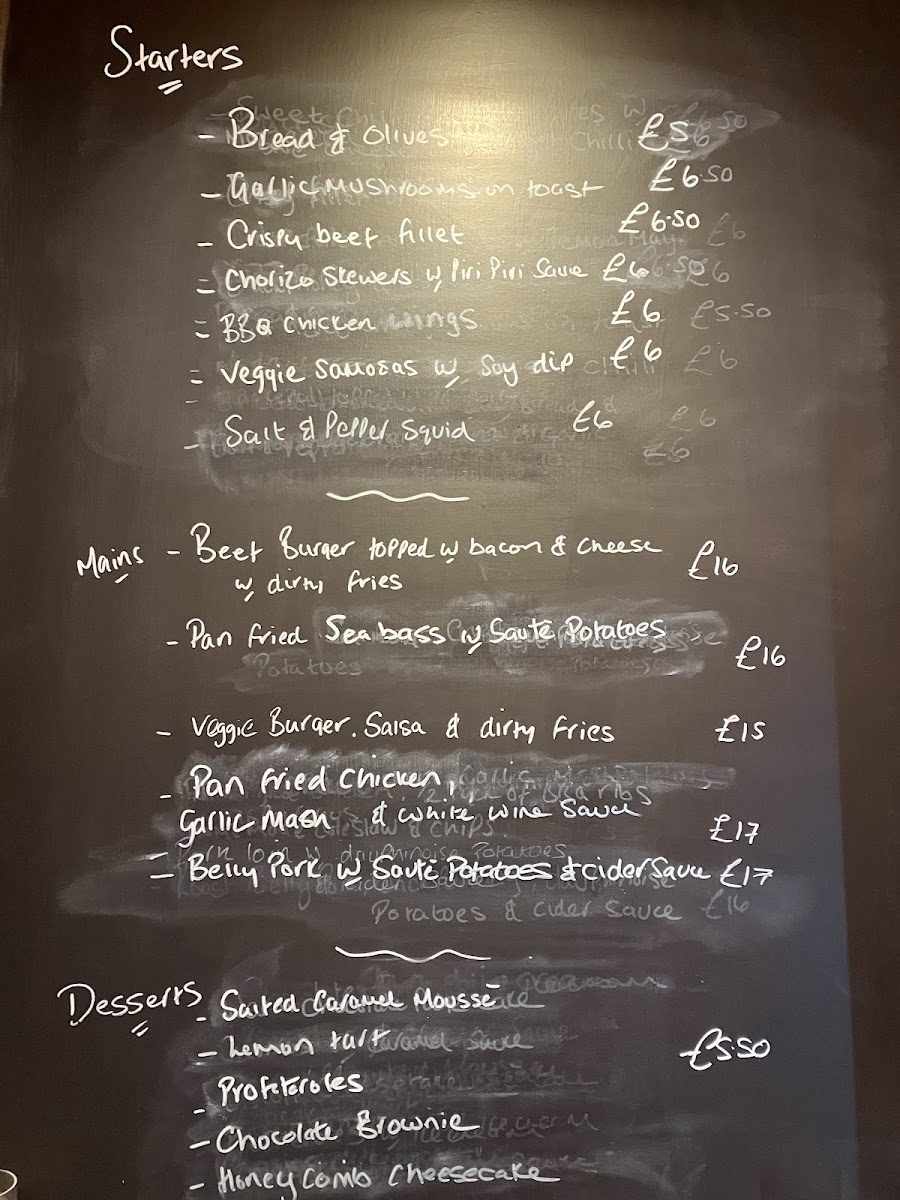 Starters
- Bread & Olives £5
- Garlic Mushrooms on toast £6.50
- Crispy beef fillet £6.50
- Chorizo Skewers w Piri Piri Sauce £6
- BBQ Chicken wings £6 £5.50
- Veggie Samosas w Soy dip £6 £6
- Salt & Pepper Squid £6 £6
£6
Mains - Beef Burger topped w bacon & cheese £16
w dirty fries
- Pan fried Sea bass w Sauté Potatoes £16
Potatoes
- Veggie Burger. Salsa & dirty fries £15
- Pan fried Chicken,
Garlic Mash & white wine Sauce £17
- Belly Pork w Sauté Potatoes & cider Sauce £17
Potatoes & cider sauce £16
Desserts - Salted Caramel Mousse
- Lemon tart £5.50
- Profiteroles
- Chocolate Brownie
- Honey Comb Cheesecake